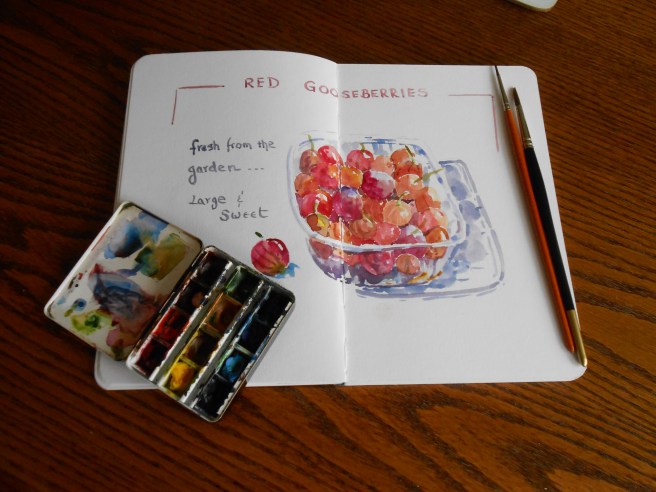 RED GOOSEBERRIES
fresh from the
garden ...
Large &
Sweet